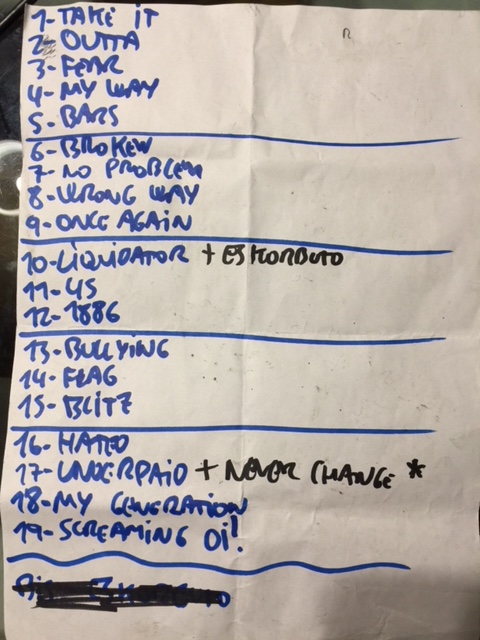 1-TAKE iT
2-OUTTA
3-FEAR
4-MY WAY
5-BARS
6-BROKEN
7-NO PROBLEM
8-WRONG WAY
9-ONCE AGAIN
10-LiQUiDATOR + ESKORBUTO
11-45
12-1886
13-BULLYiNG
14-FLAG
15-BLiTZ
16-HATED
17-UNDERPAiD + NEVER CHANGE *
18-MY GENERATiON
19-SCREAMiNG Oi!